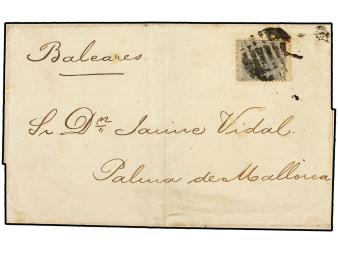 Baleares.
Sr Dn Jaime Vidal.
Palma de Mallorca